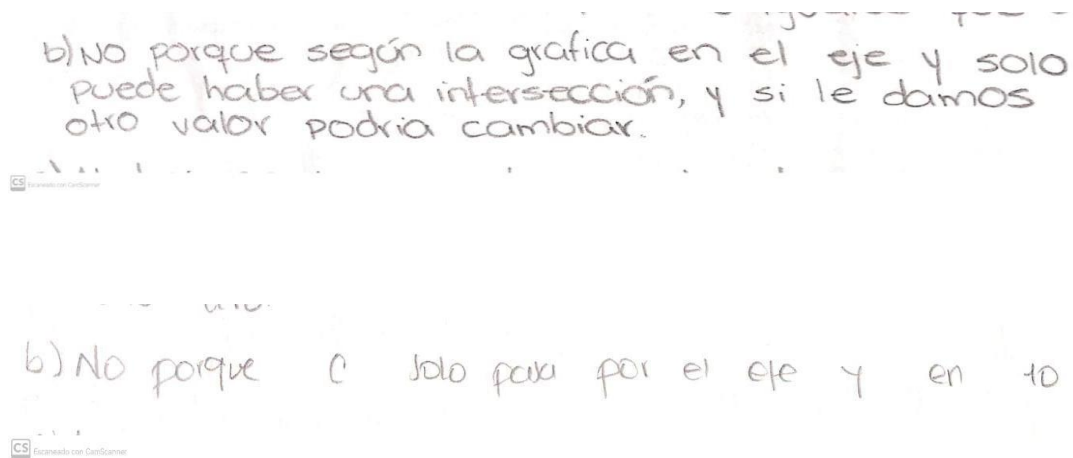 b) No porque según la grafica en el eje y solo
puede haber una intersección, y si le damos
otro valor podria cambiar.
CS Escaneado con CamScanner
b) No porque C solo pasa por el eje y en 10
CS Escaneado con CamScanner